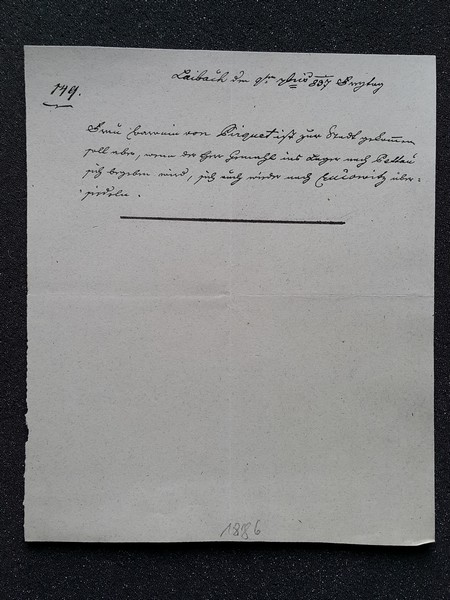 149.
Laibach den 9ten 7bris 837 Freytag
Frau Baronin von Piquet ist zur Stadt gekommen
soll aber, wenn der Herr Gemahl ins Lager nach Pettau
sich begeben wird, sich auch wieder nach über-
siedeln.
1886